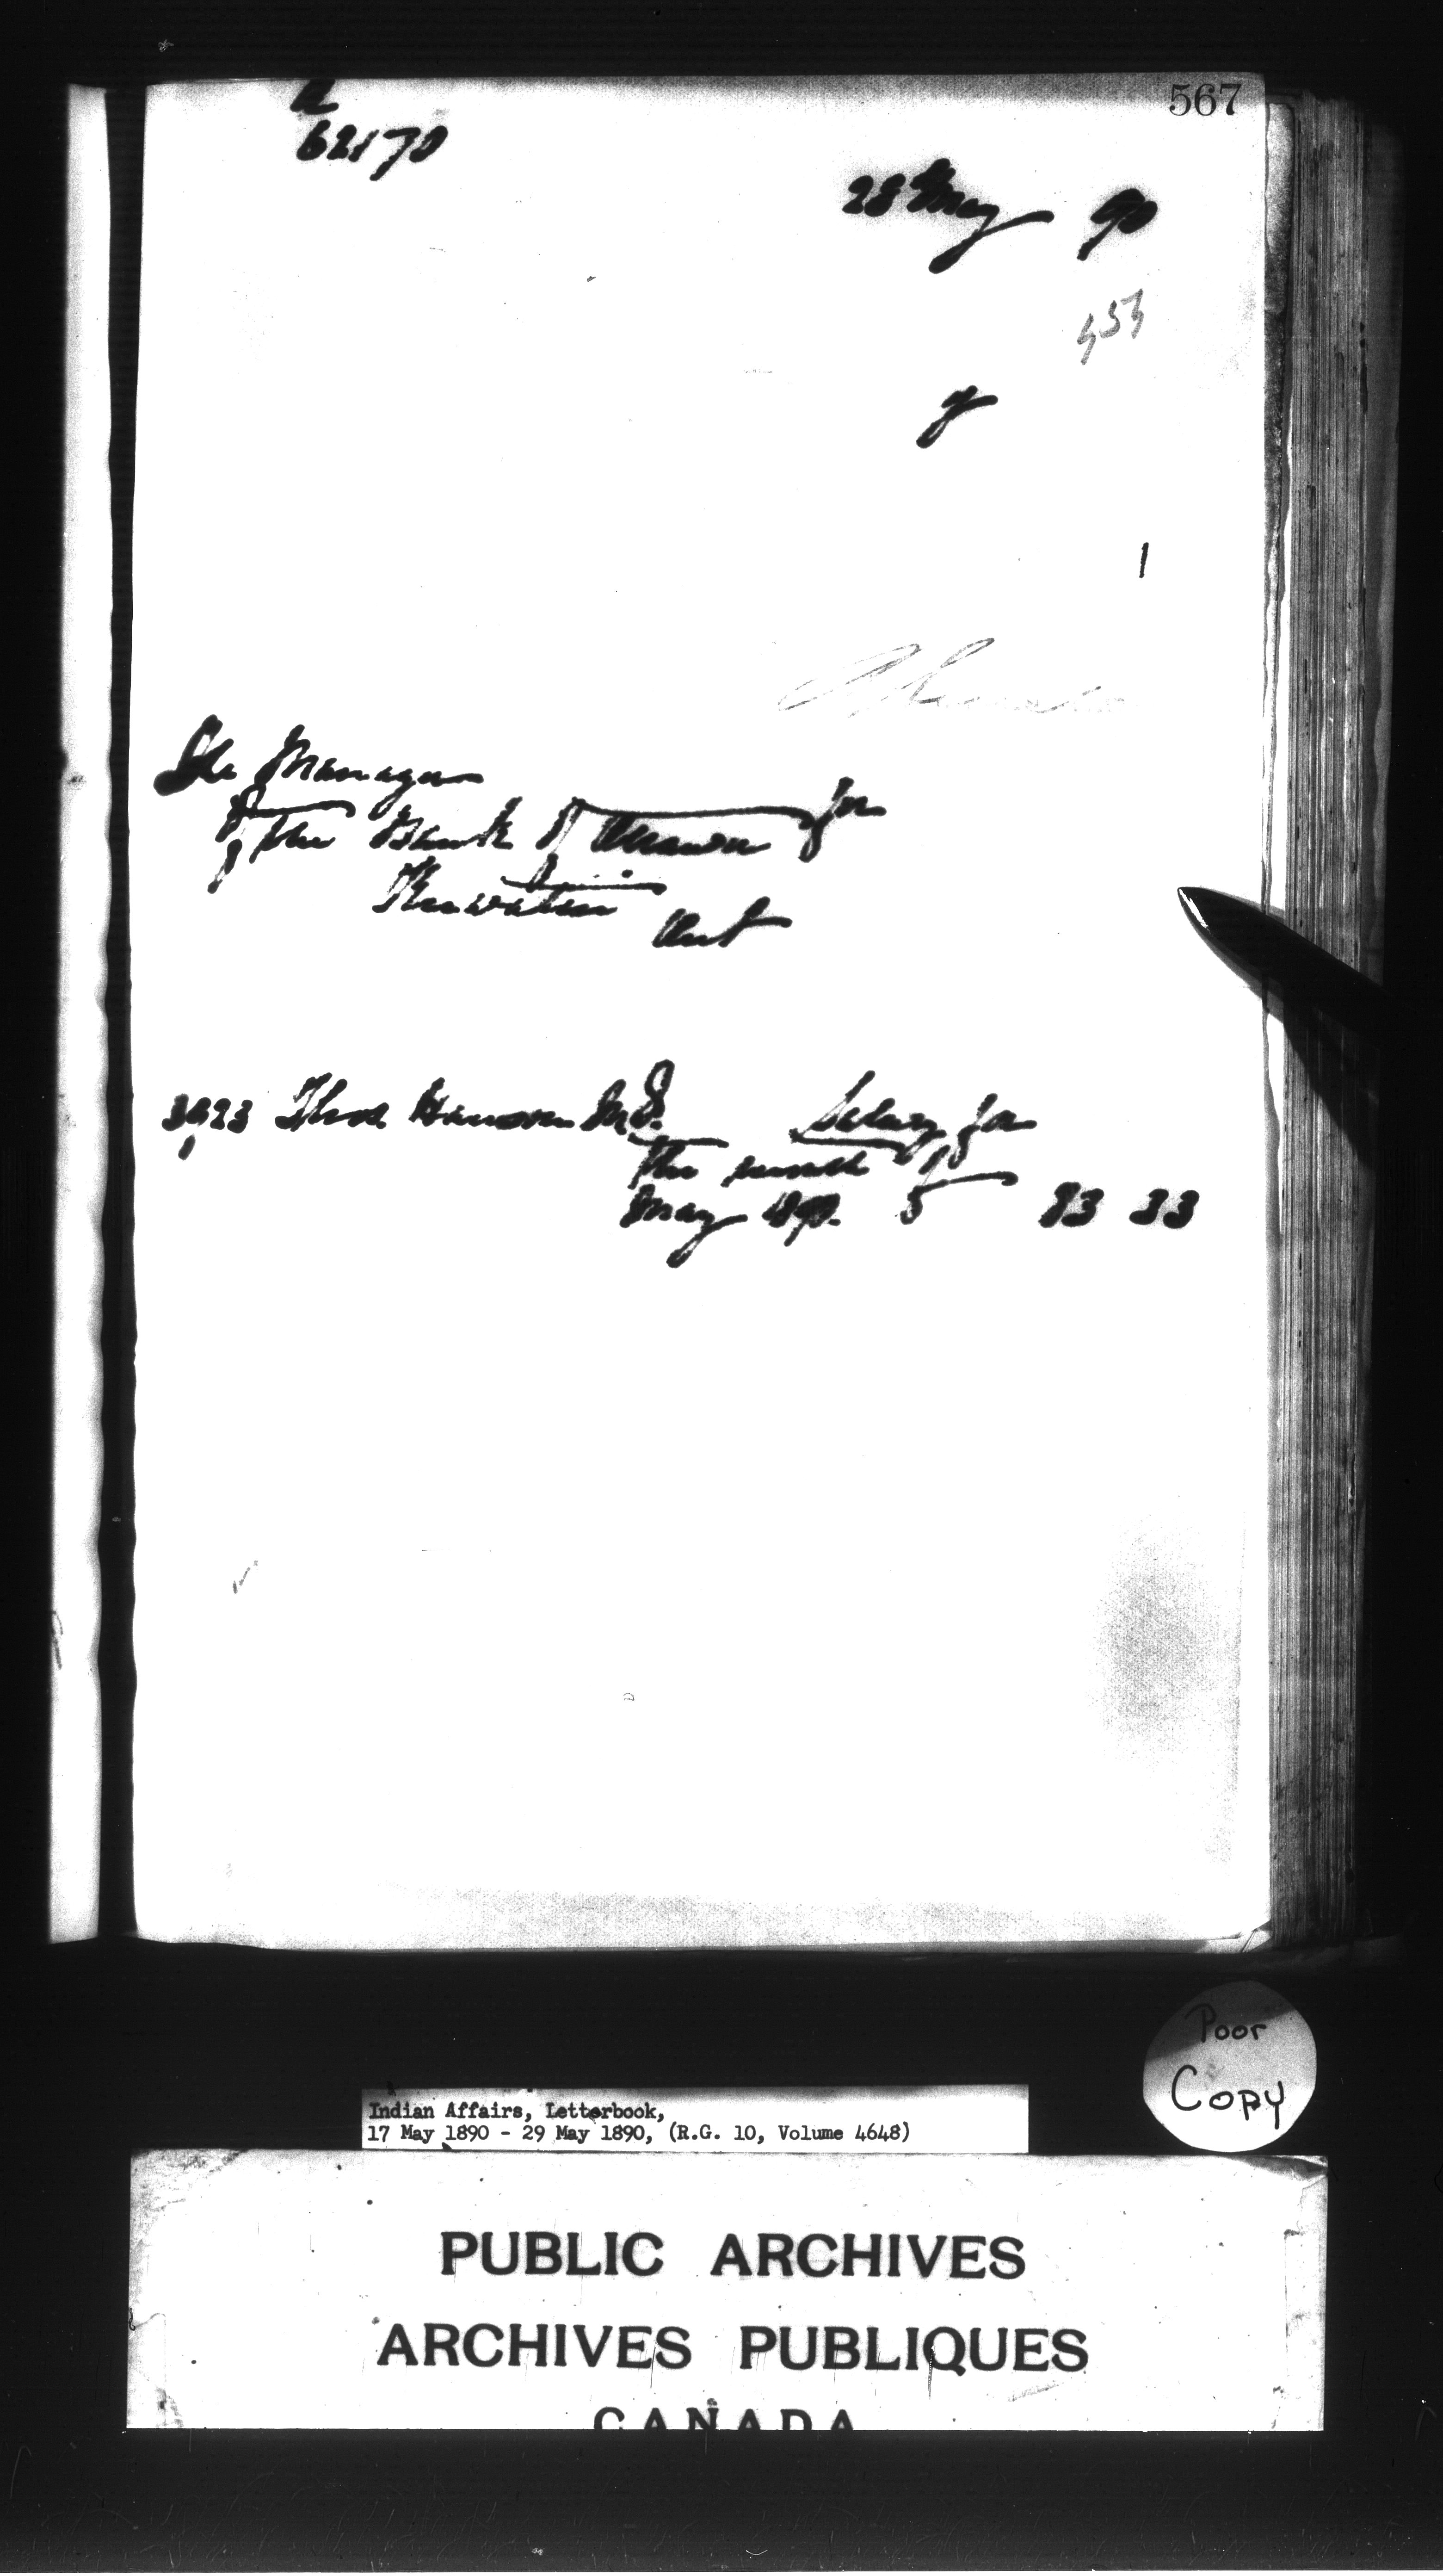 567
62170
28 May 90
The Manager
of the Bank of Ottawa for
Keewatin
Ont
3923 Thos Hanson M.D. Salary for
the month of
May 1890. $ 83 33
Poor
Copy
Indian Affairs, Letterbook,
17 May 1890 - 29 May 1890, (R.G. 10, Volume 4648)
PUBLIC ARCHIVES
ARCHIVES PUBLIQUES
CANADA